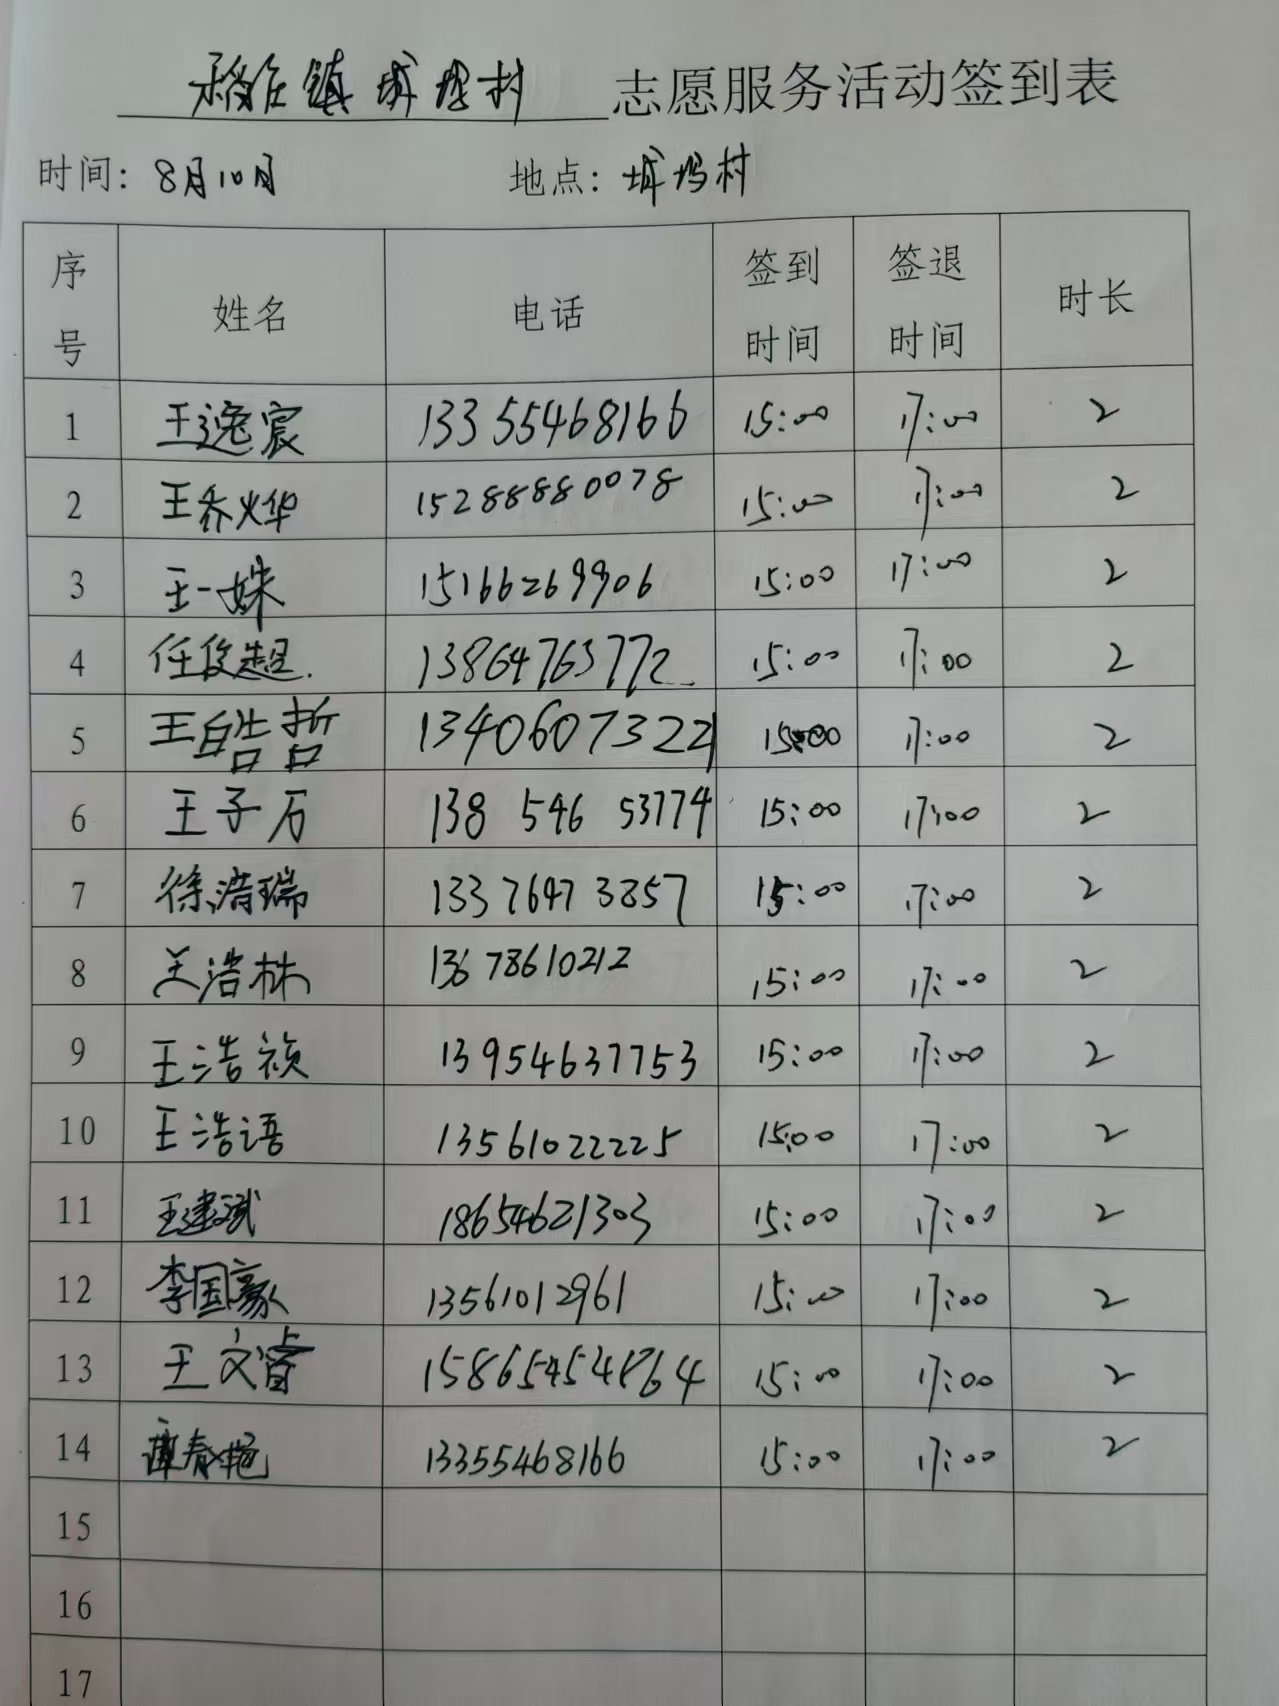 稻庄镇 村 志愿服务活动签到表
时间：8月10日 地点： 村
序号 姓名 电话 签到时间 签退时间 时长
1 王逸宸 13355468166 15:00 17:00 2
2 王乔烨 15288880078 15:00 17:00 2
3 王一姝 15166269906 15:00 17:00 2
4 任俊超 13864763772 15:00 17:00 2
5 王皓哲 13406073221 15:00 17:00 2
6 王子万 138 546 53774 15:00 17:00 2
7 徐浩瑞 13376473857 15:00 17:00 2
8 王浩林 13678610212 15:00 17:00 2
9 王浩祯 13954637753 15:00 17:00 2
10 王浩语 13561022225 15:00 17:00 2
11 王建斌 18654621303 15:00 17:00 2
12 李国豪 13561012961 15:00 17:00 2
13 王文睿 15:00 17:00 2
14 13355468166 15:00 17:00 2
15
16
17